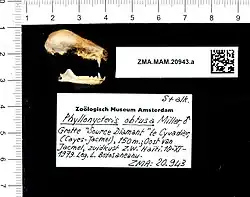 ZMA.MAM.20943.a
S + alk.
Zoölogisch Museum Amsterdam
Phyllonycteris obtusa Miller, ♂
Grotte "Source Diamant" te Cyvadier,
(Cayes-Jacmel), 150m; Oost van
Jacmel, zuidkust Z.W. Haïti; 19-XI-
1979. Leg. L. Botosaneanu.
ZMA: 20.943